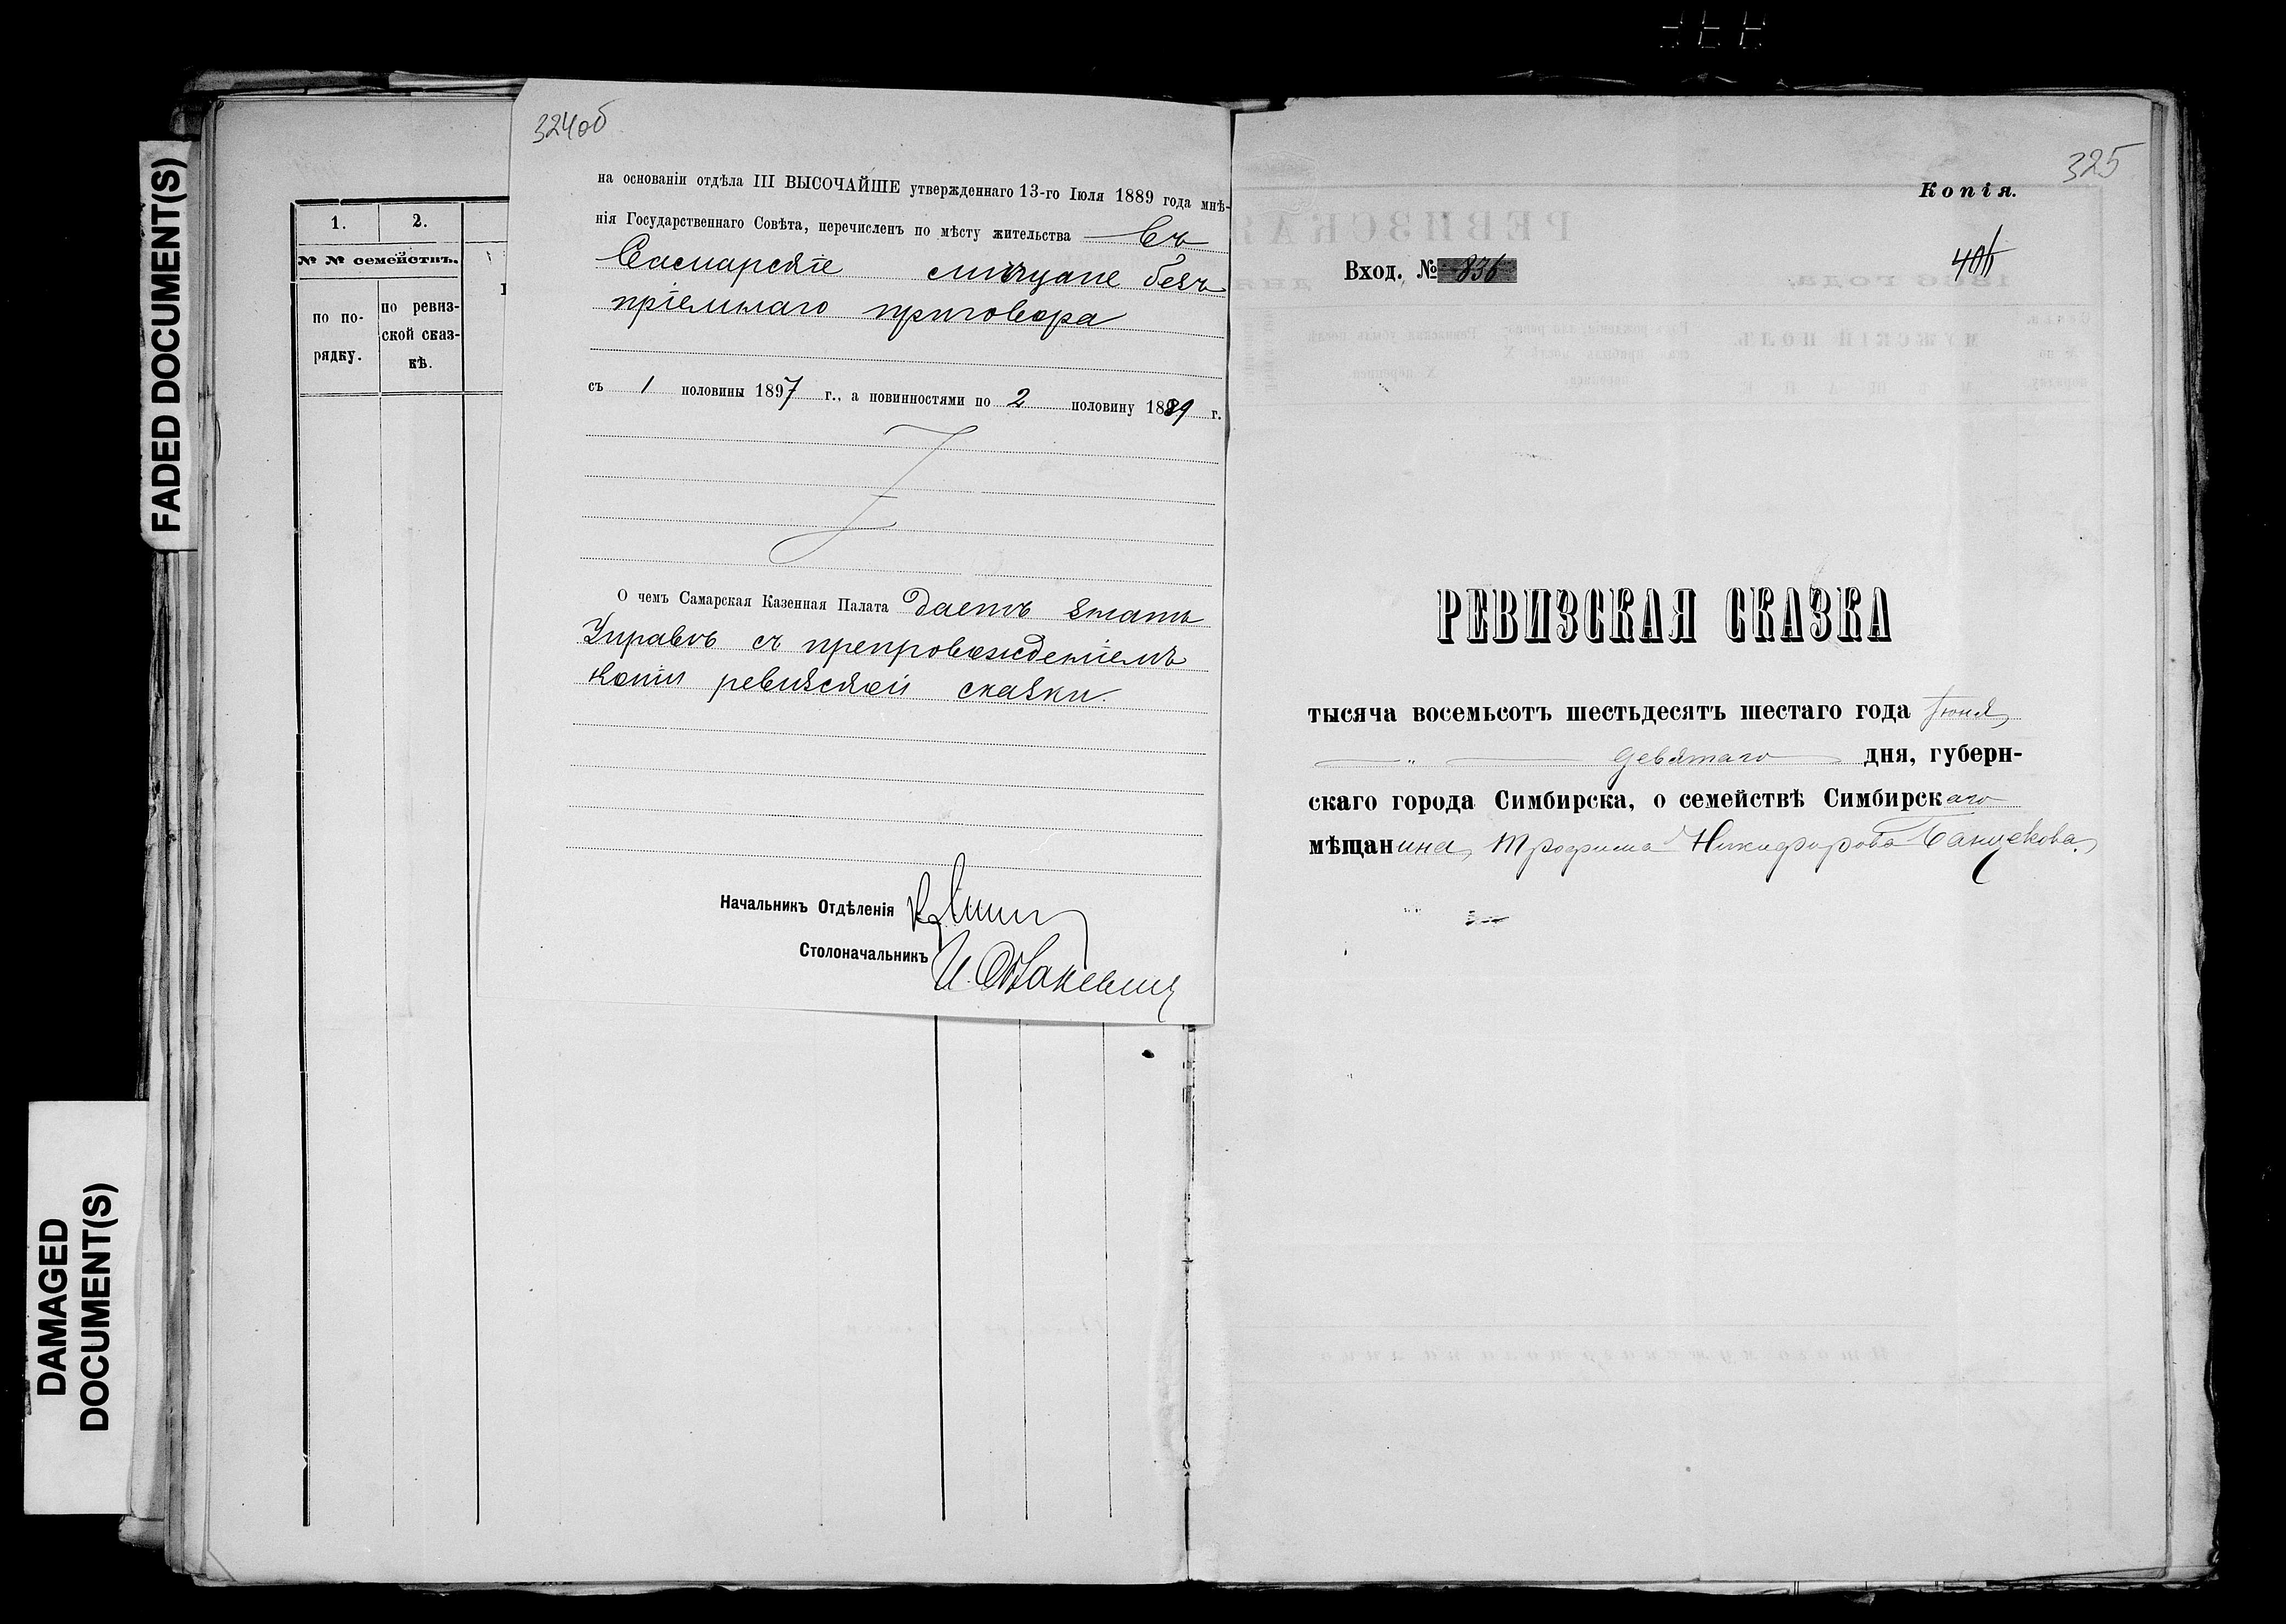 FADED DOCUMENT(S)
DAMAGED
DOCUMENT(S)
1. 2.
№ № семействъ.
по по-
рядку.
по ревиз-
ской сказ-
кѣ.
324об
на основаніи отдѣла III ВЫСОЧАЙШЕ утвержденнаго 13-го Іюля 1889 года мнѣ-
нія Государственнаго Совѣта, перечисленъ по мѣсту жительства въ
Самарскіе мѣщане безъ
пріемнаго приговора
съ 1 половины 1897 г., а повинностями по 2 половину 1889 г.
О чемъ Самарская Казенная Палата даетъ знать
Управѣ съ препровожденіемъ
копіи ревизской сказки.
Начальникъ Отдѣленія
Столоначальникъ
325
Копія.
Вход. № 836
РЕВИЗСКАЯ СКАЗКА
тысяча восемьсотъ шестьдесятъ шестаго года Іюня
" девятаго дня, губерн-
скаго города Симбирска, о семействѣ Симбирскаго
мѣщанина, Трофима Никифорова